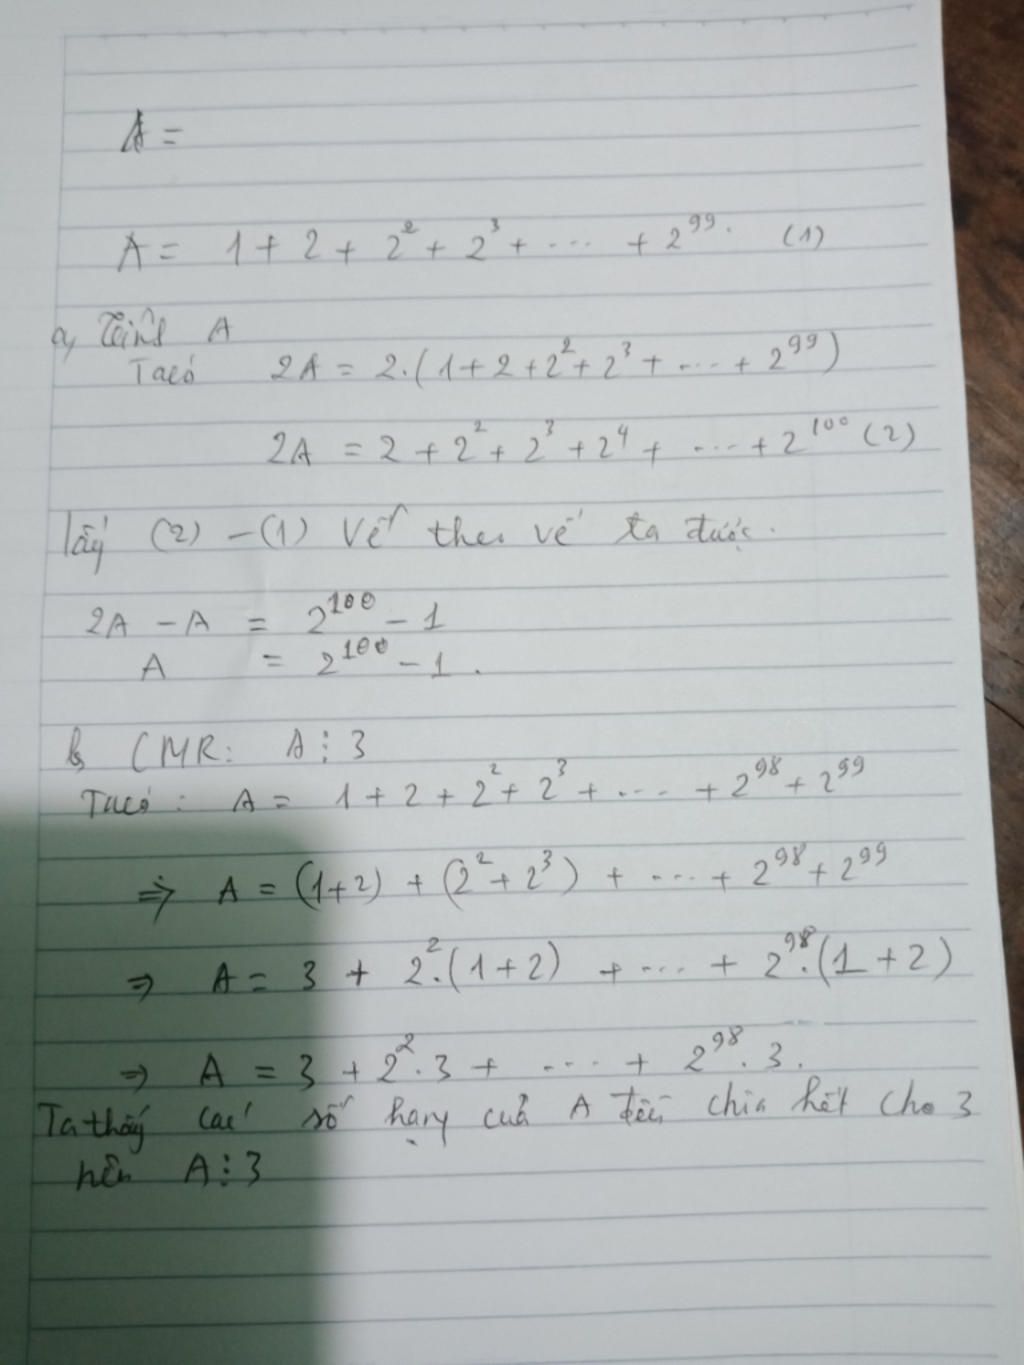 A =
A = 1 + 2 + 2² + 2³ + ... + 2⁹⁹. (1)
a, Tính A
Ta có 2A = 2.(1 + 2 + 2² + 2³ + ... + 2⁹⁹)
2A = 2 + 2² + 2³ + 2⁴ + ... + 2¹⁰⁰ (2)
lấy (2) - (1) Vế theo vế ta được.
2A - A = 2¹⁰⁰ - 1
A = 2¹⁰⁰ - 1.
b, CMR: A ⋮ 3
Ta có: A = 1 + 2 + 2² + 2³ + ... + 2⁹⁸ + 2⁹⁹
⇒ A = (1+2) + (2² + 2³) + ... + 2⁹⁸ + 2⁹⁹
⇒ A = 3 + 2².(1+2) + ... + 2⁹⁸.(1+2)
⇒ A = 3 + 2².3 + ... + 2⁹⁸.3.
Ta thấy các số hạng của A đều chia hết cho 3
nên A ⋮ 3